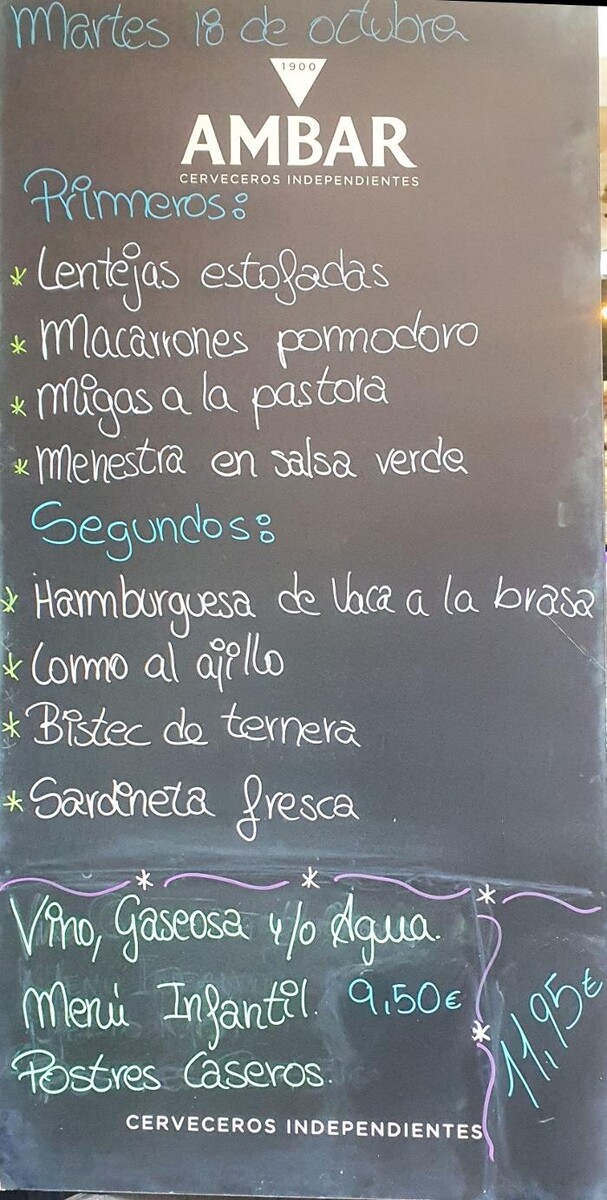 Martes 18 de octubre
1900
AMBAR
CERVECEROS INDEPENDIENTES
Primeros:
* Lentejas estofadas
* Macarrones pomodoro
* Migas a la pastora
* Menestra en salsa verde
Segundos:
* Hamburguesa de Vaca a la brasa
* Lomo al ajillo
* Bistec de ternera
* Sardineta fresca
Vino, Gaseosa y/o Agua.
Menú Infantil. 9,50€
11,95€
Postres Caseros.
CERVECEROS INDEPENDIENTES